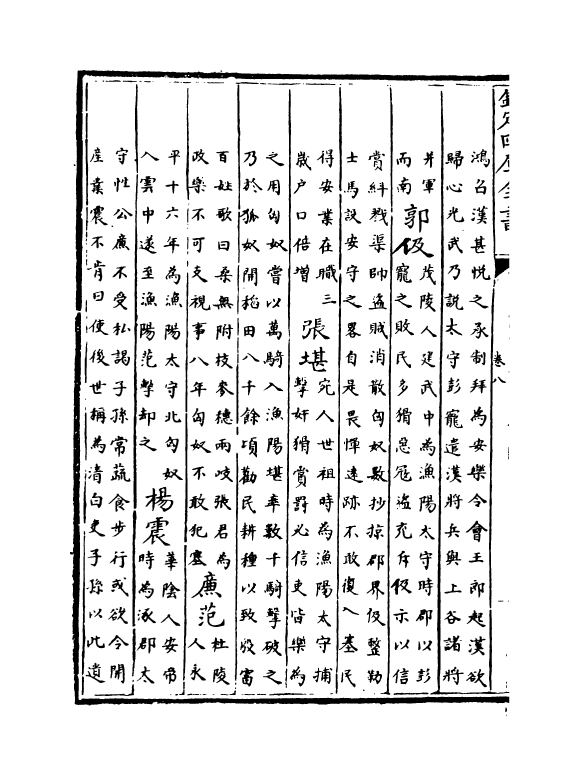 欽定四庫全書
卷八
鴻召漢甚悦之承制拜為安樂令會王郎起漢欲
歸心光武乃説太守彭寵遣漢將兵與上谷諸將
并軍
而南
郭伋
茂陵人建武中為漁陽太守時郡以彭
寵之敗民多猾惡冦盜充斥伋示以信
賞糾戮渠帥盜賊消散匈奴數抄掠郡界伋整勒
士馬設安守之畧自是畏憚逺跡不敢復入塞民
得安業在職三
嵗户口倍增
張堪
宛人世祖時為漁陽太守捕
擊奸猾賞罰必信吏皆樂為
之用匈奴嘗以萬騎入漁陽堪率數十騎擊破之
乃於狐奴開稻田八千餘頃勸民耕種以致殷富
百姓歌曰桑無附枝麥穗兩岐張君為
政樂不可支視事八年匈奴不敢犯塞
廉范
杜陵
人永
平十六年為漁陽太守北匈奴
入雲中遂至漁陽范擊却之
楊震
華隂人安帝
時為涿郡太
守性公廉不受私謁子孫常蔬食步行或欲令開
産業震不肯曰使後世稱為清白吏子孫以此遺